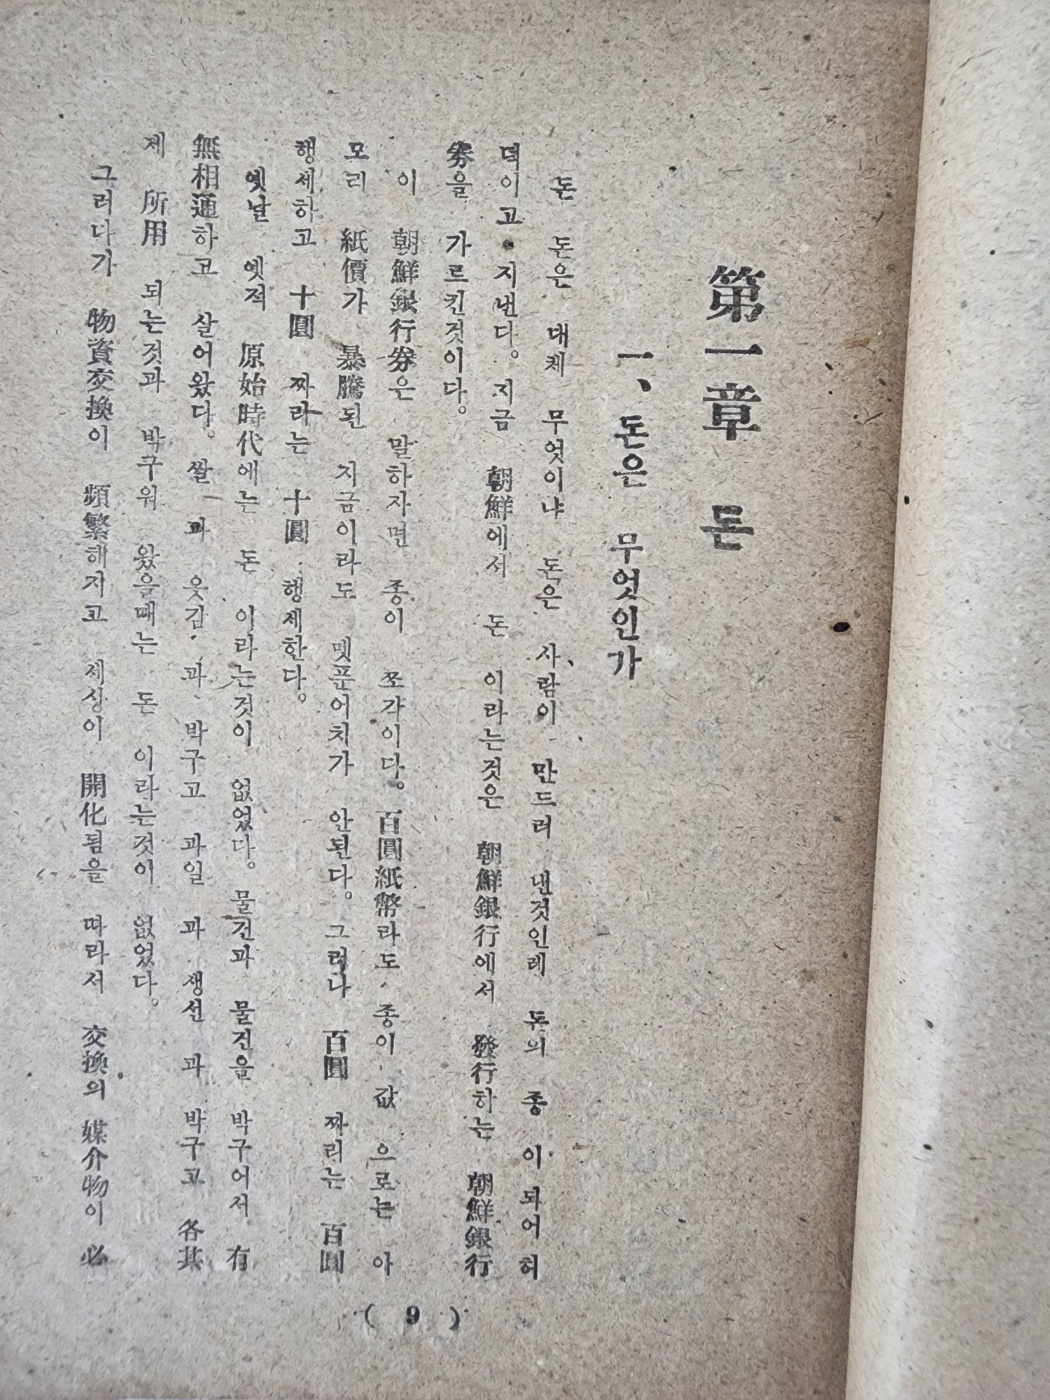 第一章 돈
一、돈은 무엇인가
돈 돈은 대체 무엇이냐 돈은 사람이 만드러 낸것인데 돈의 종 이 되어 허
덕이고 지낸다。지금 朝鮮에서 돈 이라는것은 朝鮮銀行에서 發行하는 朝鮮銀行
券을 가르킨것이다。
이 朝鮮銀行券은 말하자면 종이 쪼각이다。百圓紙幣라도 종이 값 으로는 아
모리 紙價가 暴騰된 지금이라도 몟푼어치가 안된다。그러나 百圓 짜리는 百圓
행세하고 十圓 짜리는 十圓 행세한다。
옛날 옛적 原始時代에는 돈 이라는것이 없었다。물건과 물건을 박구어서 有
無相通하고 살어왔다。쌀 과 옷감 과 박구고 과일 과 생선 과 박구고 各其
제 所用 되는것과 박구워 왔을때는 돈 이라는것이 없었다。
그러다가 物資交換이 頻繁해지고 세상이 開化됨을 따라서 交換의 媒介物이 必
( 9 )